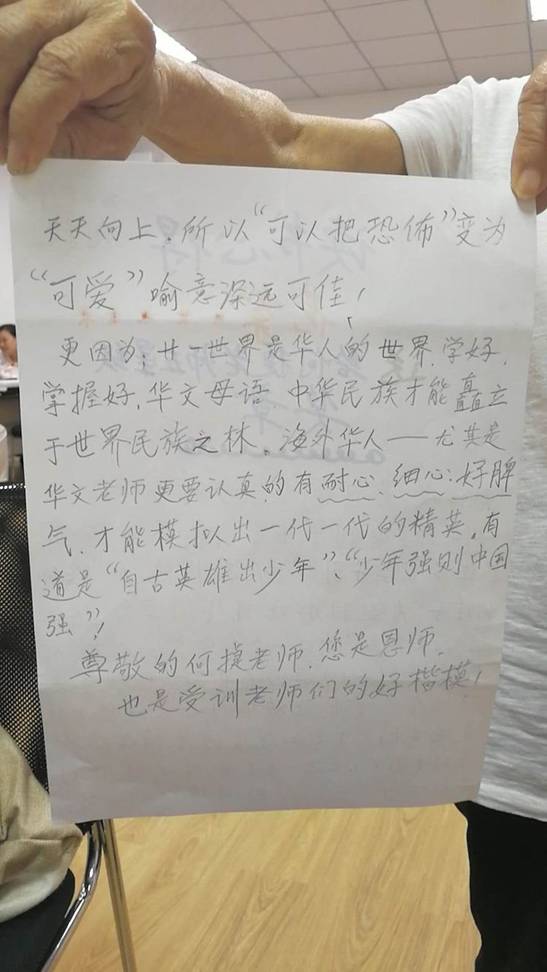 天天向上，所以“可以把恐佈”变为
“可爱”喻意深远可佳！
更因为：廿一世界是华人的世界，学好，
掌握好，华文母语，中华民族才能矗立
于世界民族之林。海外华人——尤其是
华文老师更要认真的有耐心、细心、好脾
气，才能模拟出一代一代的精英，有
道是“自古英雄出少年”、“少年强则中国
强”！
尊敬的何捷老师，您是恩师，
也是受训老师们的好楷模！